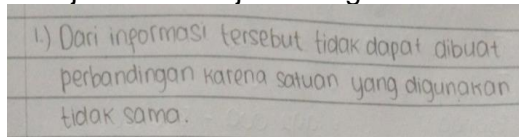 1.) Dari informasi tersebut tidak dapat dibuat
perbandingan karena satuan yang digunakan
tidak sama.